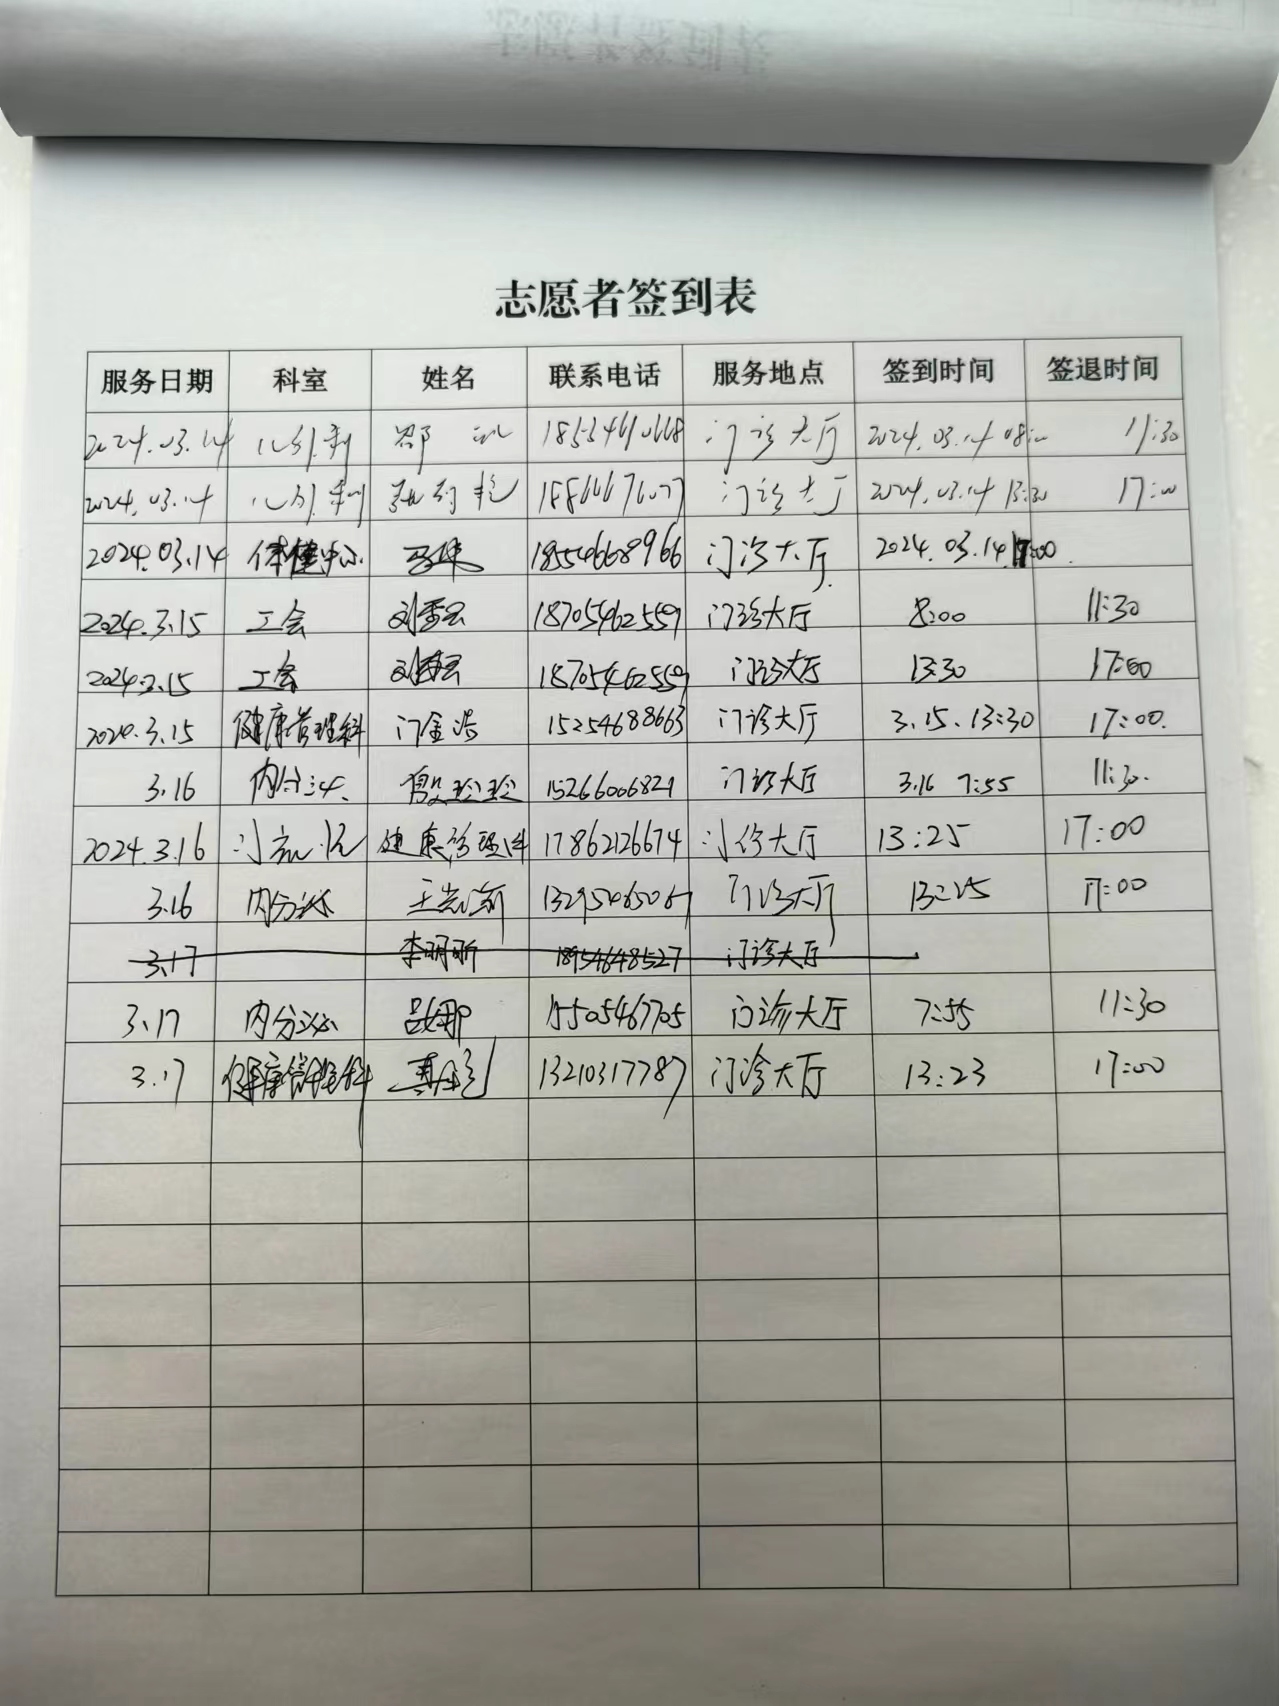 志愿者签到表
服务日期 科室 姓名 联系电话 服务地点 签到时间 签退时间
2024.03.14 心外科 门诊大厅 2024.03.14 08:00 11:30
2024.03.14 心外科 门诊大厅 2024.03.14 13:30 17:00
2024.03.14 体健中心 18554668966 门诊大厅 2024.03.14 17:00
2024.3.15 工会 18705462559 门诊大厅 8:00 11:30
2024.3.15 工会 18705462559 门诊大厅 13:30 17:00
2024.3.15 健康管理科 门金浩 15254688663 门诊大厅 3.15.13:30 17:00.
3.16 内分泌 殷玲玲 15266006821 门诊大厅 3.16 7:55 11:30.
2024.3.16 健康管理科 17862126674 门诊大厅 13:25 17:00
3.16 内分泌 门诊大厅 13:25 17:00
3.17 李明昕 18954648527 门诊大厅
3.17 内分泌 吕娜 15505467705 门诊大厅 7:55 11:30
3.17 健康管理科 13210317787 门诊大厅 13:23 17:00